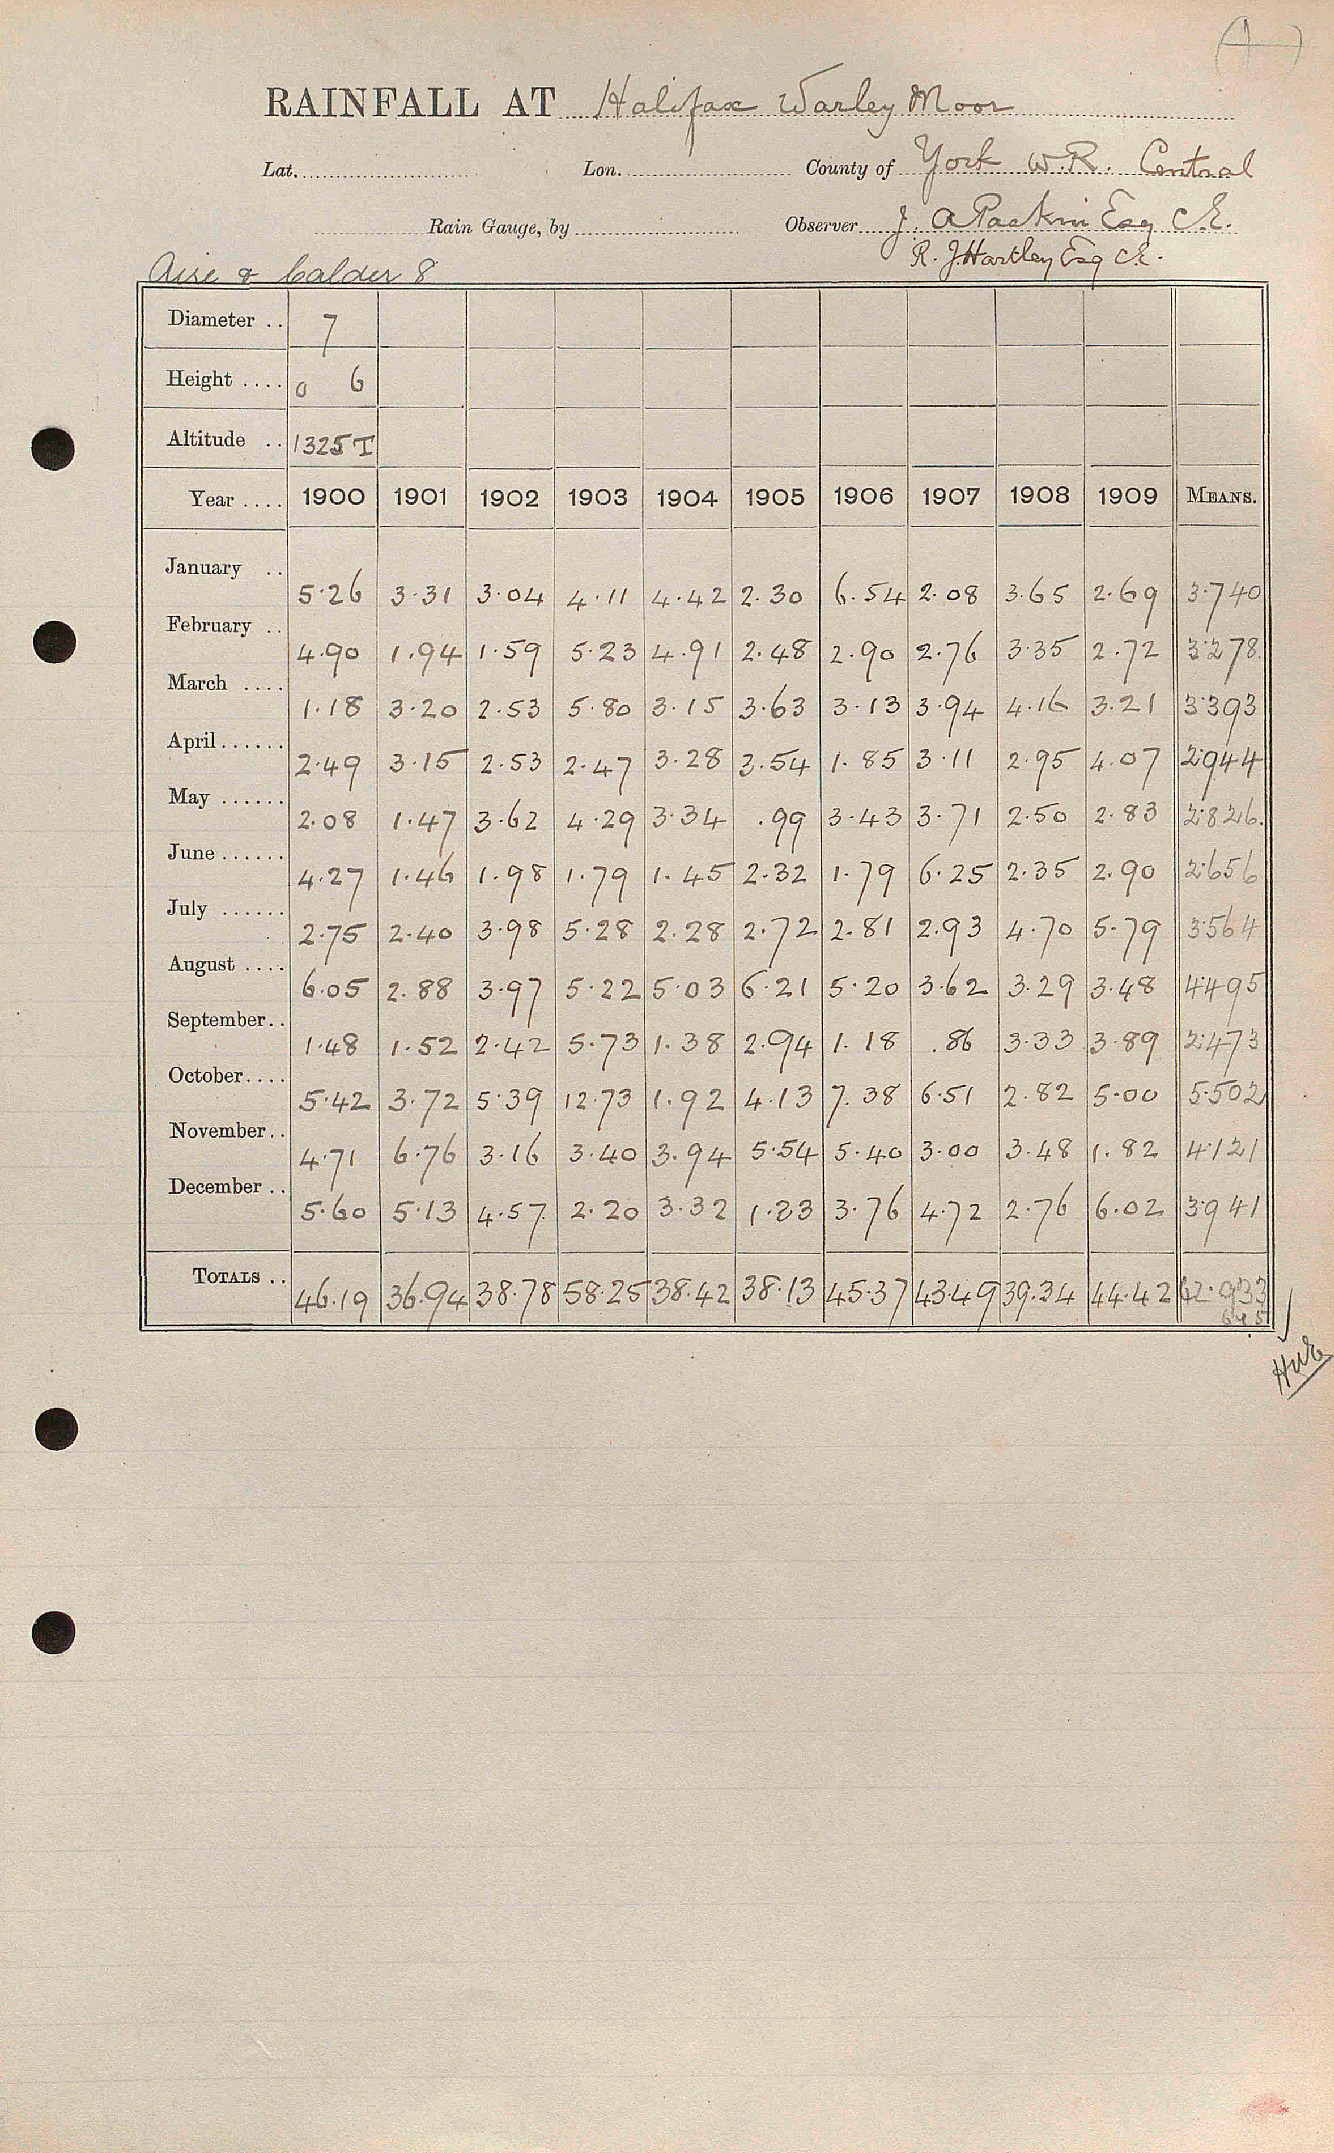 (1)
RAINFALL AT Halifax Warley Moor
Lat. Lon. County of York W.R. Central
Rain Gauge, by Observer J. A Paskin Esq C.E.
R. J. Hartley Esq C.E.
Aire & Calder 8
Diameter .. 7
Height .... 0 6
Altitude .. 1325 T
Year .... 1900 1901 1902 1903 1904 1905 1906 1907 1908 1909 MEANS.
January .. 5.26 3.31 3.04 4.11 4.42 2.30 6.54 2.08 3.65 2.69 3.740
February .. 4.90 1.94 1.59 5.23 4.91 2.48 2.90 2.76 3.35 2.72 3.278
March .... 1.18 3.20 2.53 5.80 3.15 3.63 3.13 3.94 4.16 3.21 3.393
April ...... 2.49 3.15 2.53 2.47 3.28 3.54 1.85 3.11 2.95 4.07 2.944
May ...... 2.08 1.47 3.62 4.29 3.34 .99 3.43 3.71 2.50 2.83 2.826
June ...... 4.27 1.46 1.98 1.79 1.45 2.32 1.79 6.25 2.35 2.90 2.656
July ...... 2.75 2.40 3.98 5.28 2.28 2.72 2.81 2.93 4.70 5.79 3.564
August .... 6.05 2.88 3.97 5.22 5.03 6.21 5.20 3.62 3.29 3.48 4.495
September .. 1.48 1.52 2.42 5.73 1.38 2.94 1.18 .86 3.33 3.89 2.473
October .... 5.42 3.72 5.39 12.73 1.92 4.13 7.38 6.51 2.82 5.00 5.502
November .. 4.71 6.76 3.16 3.40 3.94 5.54 5.40 3.00 3.48 1.82 4.121
December .. 5.60 5.13 4.57 2.20 3.32 1.33 3.76 4.72 2.76 6.02 3.941
TOTALS .. 46.19 36.94 38.78 58.25 38.42 38.13 45.37 43.49 39.34 44.42 42.933